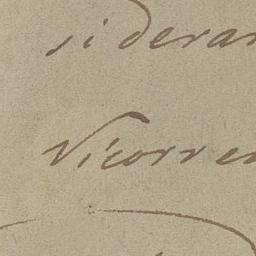 sideran
Vicorren